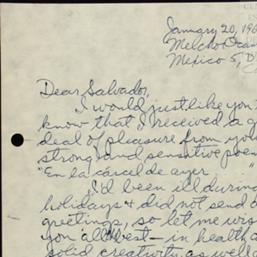 January 20, 196
Melchor Ocam
Mexico 5, D.
Dear Salvador,
I would just like you
know that I received a g
deal of pleasure from you
strong and sensitive poem
"En la cárcel de ayer"
I'd been ill durin
holidays & did not send
greetings, so let me wis
you all best — in health a
solid creativity as well a